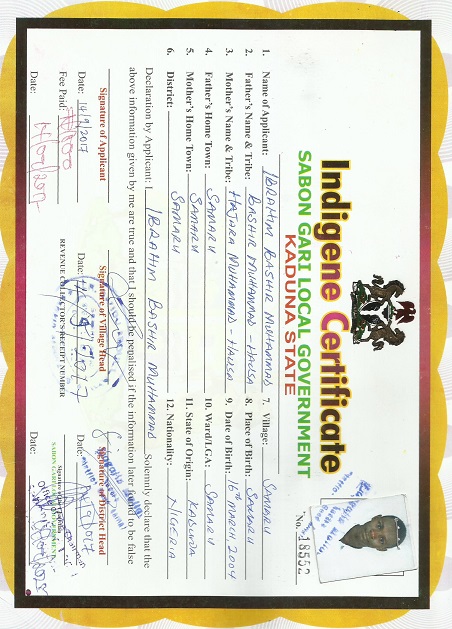 Indigene Certificate
SABON GARI LOCAL GOVERNMENT
KADUNA STATE
No. 18552
1. Name of Applicant: IBRAHIM BASHIR MUHAMMAD
2. Father's Name & Tribe: BASHIR MUHAMMAD - HAUSA
3. Mother's Name & Tribe: HAJARA MUHAMMAD - HAUSA
4. Father's Home Town: SAMARU
5. Mother's Home Town: SAMARU
6. District: SAMARU
7. Village: SAMARU
8. Place of Birth: SAMARU
9. Date of Birth: 16TH MARCH 2004
10. Ward/L.G.A: SAMARU
11. State of Origin: KADUNA
12. Nationality: NIGERIA
Declaration by Applicant: I IBRAHIM BASHIR MUHAMMAD Solemnly declare that the
above information given by me are true and that I should be penalised if the information later found to be false
Signature of Applicant
Date: 14/9/2017
Fee Paid:
Date:
Signature of Village Head
Date:
REVENUE COLLECTOR'S RECEIPT NUMBER
Signature of District Head
Date:
SABON GARI LOCAL GOVERNMENT
Date: